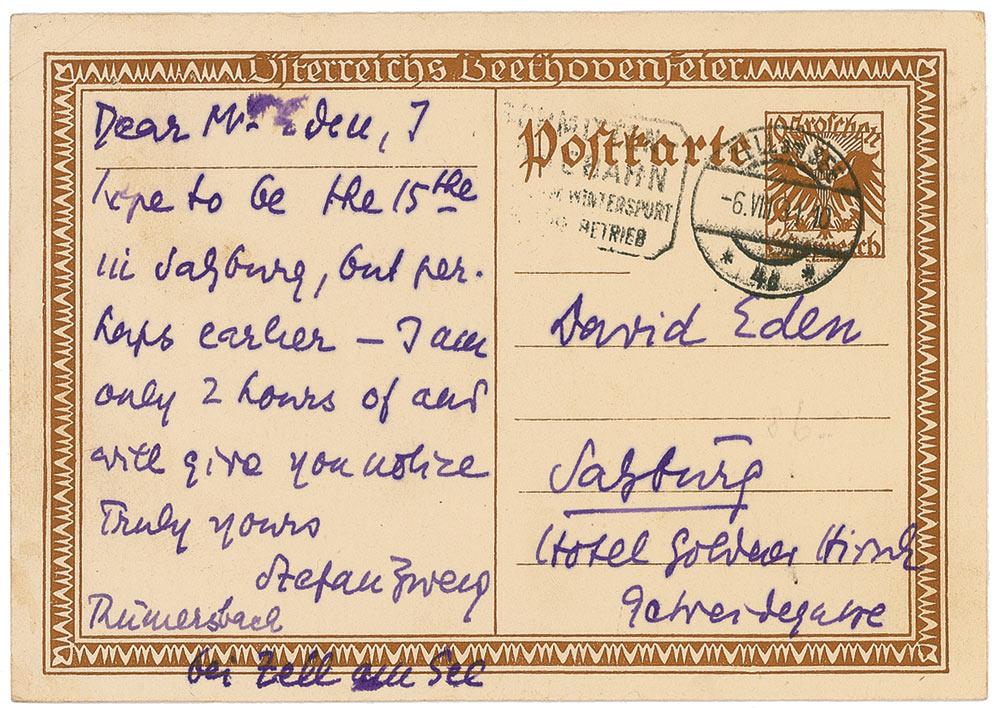 Österreichs Beethovenfeier
Dear Mr. Eden, I
hope to be the 15the
in Salzburg, but per-
haps earlier – I am
only 2 hours of and
will give you notice
Truly yours
Stefan Zweig
Thumersbach
bei Zell am See
Postkarte
WINTERSPORT
BETRIEB
-6.VIII.31.10
* 4a *
10 Groschen
Österreich
David Eden
Salzburg
Hotel Goldner Hirsch
Getreidegasse